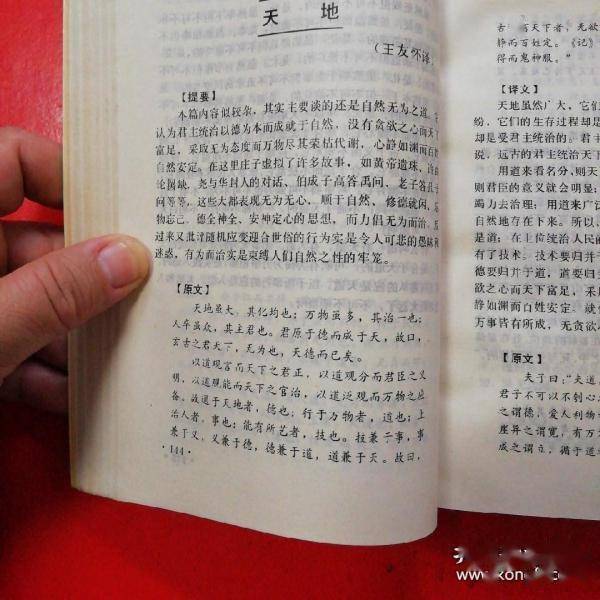 天 地
（王友怀译）
【提要】
本篇内容似较杂，其实主要谈的还是自然无为之道。
认为君主统治以德为本而成就于自然，没有贪欲之心而天下
富足，采取无为态度而万物尽其荣枯代谢，心静如渊而百姓
自然安定。在这里庄子虚拟了许多故事，如黄帝遗珠、许由
论啮缺、尧与华封人的对话、伯成子高答禹问、老子答孔子
问等等，这些大都表现无为无心、顺于自然、修德就闲、忘
物忘己、德全神全、安神定心的思想，而力倡无为而治。反
过来又批评随机应变迎合世俗的行为实是令人可悲的愚昧和
迷惑，有为而治实是束缚人们自然之性的牢笼。
【原文】
天地虽大，其化均也；万物虽多，其治一也；
人卒虽众，其主君也。君原于德而成于天，故曰，
玄古之君天下，无为也，天德而已矣。
以道观言而天下之君正，以道观分而君臣之义
明，以道观能而天下之官治，以道泛观而万物之应
备。故通于天地者，德也；行于万物者，道也；上
治人者，事也；能有所艺者，技也。技兼于事，事
兼于义，义兼于德，德兼于道，道兼于天。故曰，
144
古之 天下者，无欲
静而百姓定。《记》
得而鬼神服。”
【译文】
天地虽然广大，它们
纷，它们的生存过程却是
却是受君主统治的。君主
说，远古的君主统治天下
用道来看名分，则天
则君臣的意义就会明显；
竭力去治理；用道来广泛
自然地存在下来。所以、
是道；在上位统治人民的
有了技术。技术要归并于
德要归并于道，道要归并
欲之心而天下富足，采取
静如渊而百姓安定。就
万事皆有所成，无贪欲
【原文】
夫子曰：“夫道，
君子不可以不刳心
之谓德，爱人利物
崖异之谓宽，有万
成之谓立，循于道
www.kon